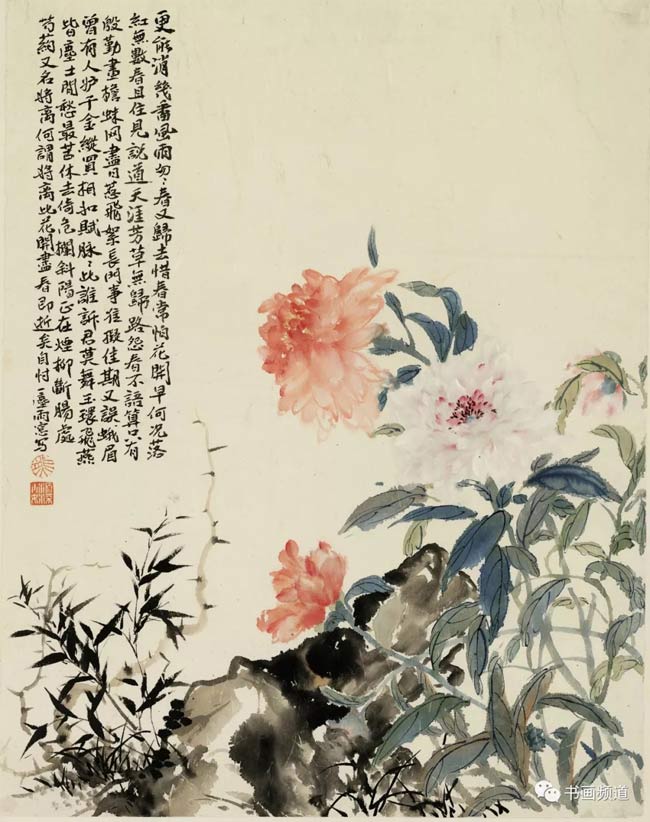 更能消幾番風雨匆〻春又歸去惜春常怕花開早何況落
紅無數春且住見說道天涯芳草無歸路怨春不語算只有
殷勤畫檐蛛网盡日惹飛絮長門事准擬佳期又誤蛾眉
曾有人妒千金縱買相如賦脉〻此誰訴君莫舞玉環飛燕
皆塵土閒愁最苦休去倚危欄斜陽正在煙柳斷腸處
芍葯又名將離何謂將離此花開盡春即逝矣雨窓写
书画频道